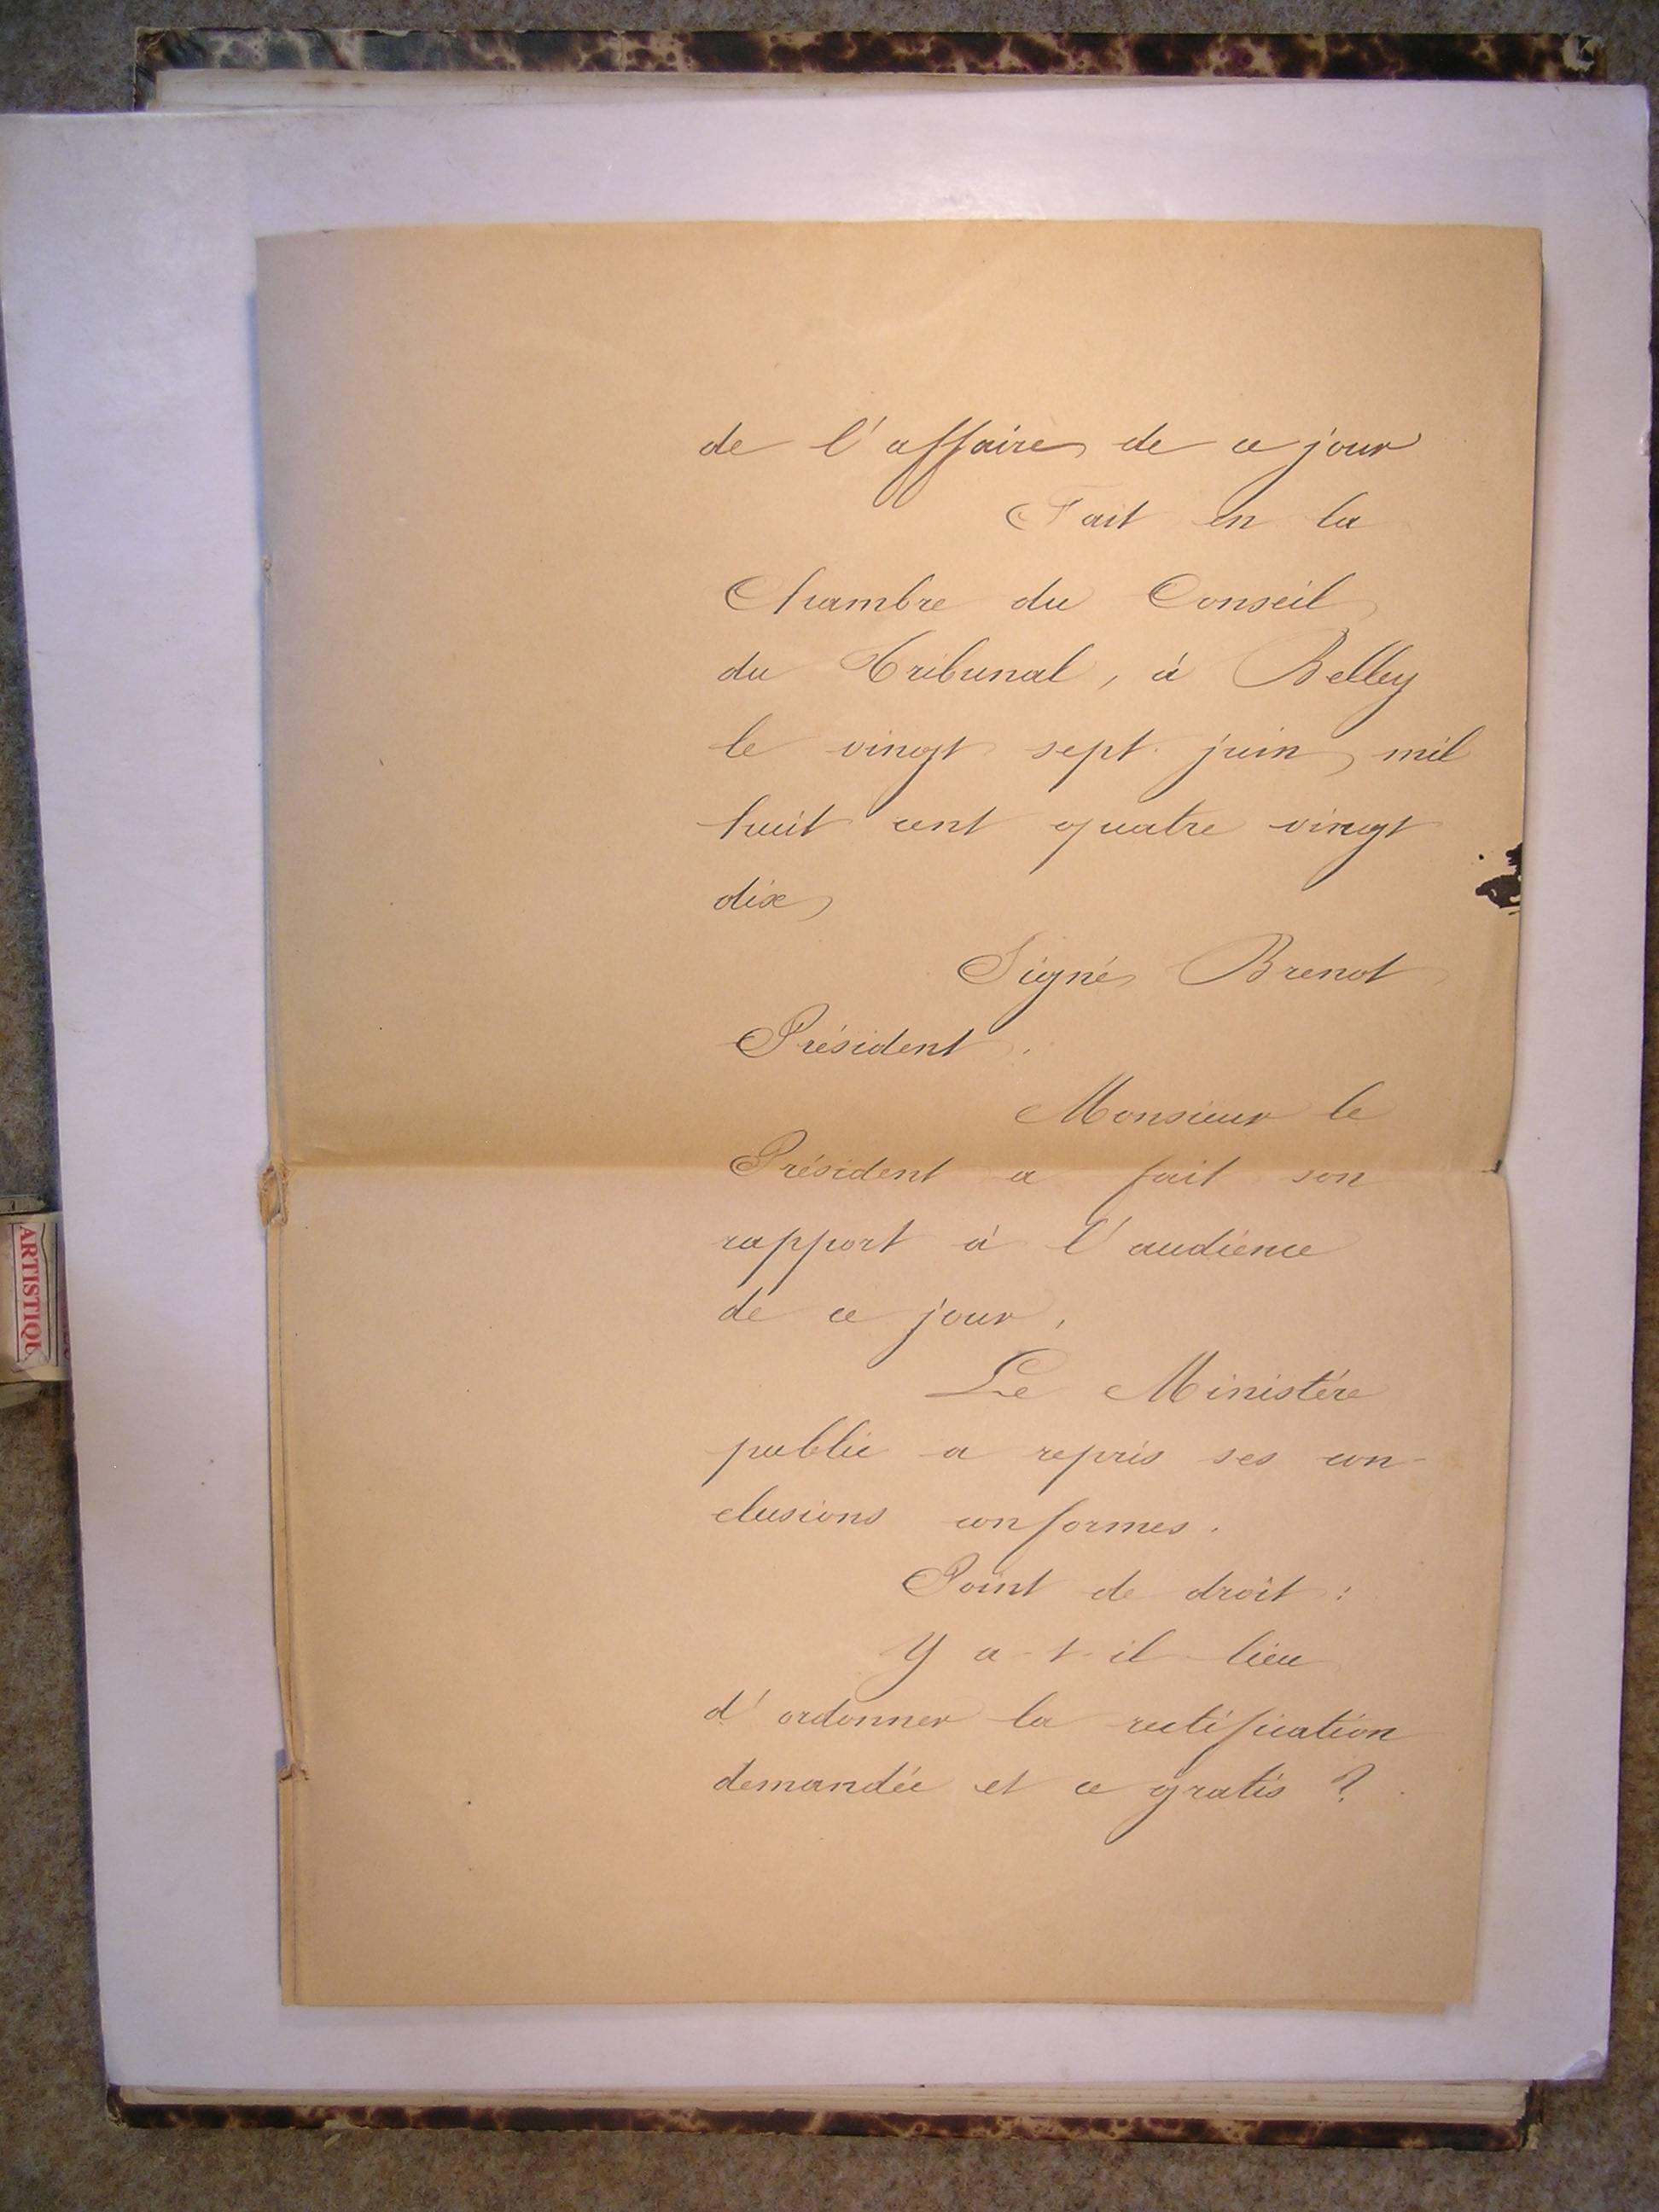 de l'affaire de ce jour
Fait en la
Chambre du Conseil
du Tribunal, à Belley
le vingt sept juin mil
huit cent quatre vingt
dix
Signé Brenot
Président.
Monsieur le
Président a fait son
rapport à l'audience
de ce jour,
Le Ministère
public a repris ses con-
clusions conformes.
Point de droit :
Y a-t-il lieu
d'ordonner la rectification
demandée et ce gratis ?
ARTISTIQU